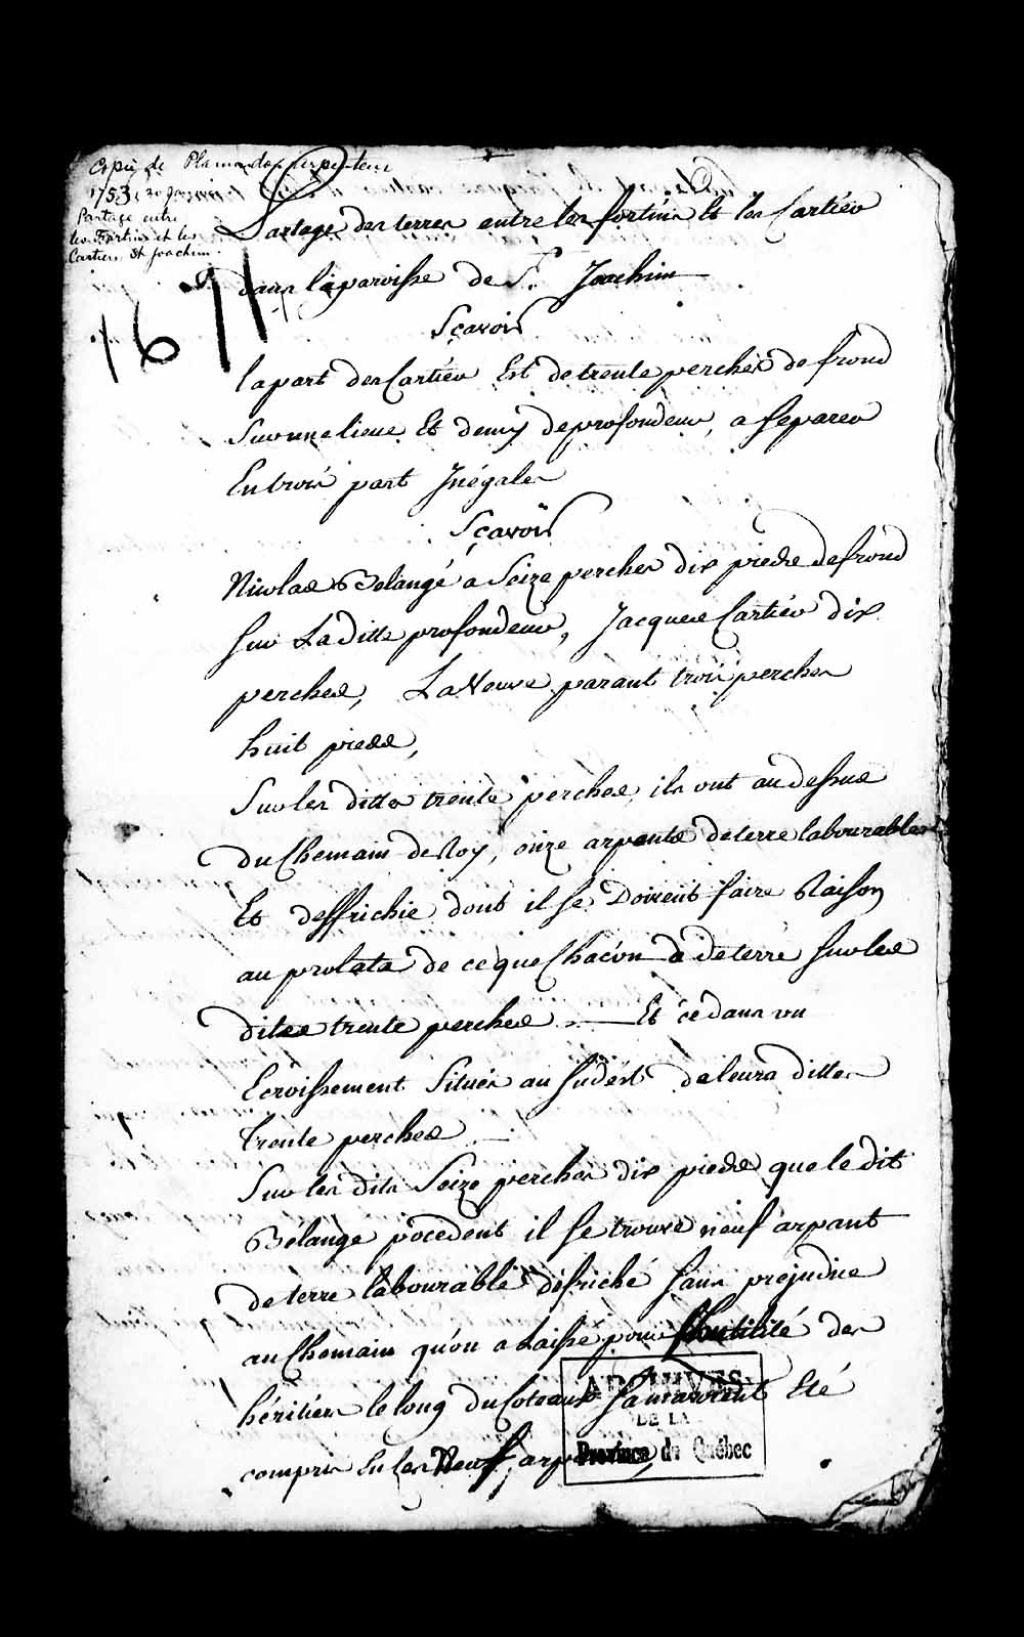 Copie de Plamondon arpenteur
1753, 20 Janvier
Partage entre
les Fortin et les
Cartier St Joachim.
1671
Partage des terres entre les fortins Et les Cartiér
dans la paroisse de St. Joachim
Sçavoir
la part des Cartiér Est de trente perches de frond
Sur une lieue Et demy de profondeur, a separer
En trois part Inégales
Sçavoir
Nicolas Belangé a Seize perches dix pieds de frond
sur La ditte profondeur, Jacques Cartiér dix
perches, La Veuve parant trois perches
huit pieds,
Sur les dittes trente perches, ils ont au dessus
du Chemain de Roy, onze arpents de terre labourables
Et deffrichie dont il se Doivent faire Raison
au prolata de ce que Chacún a de terre sur les
dites trente perches Et ce dans un
Ecroissement Situés au sudest de leurs dittes
trente perches
Sur les dits Seize perches dix pieds que le dit
Bélange pocedent il se trouve neuf arpant
de terre labourable défriché sans prejudice
au Chemain qu'on a Laissé pour utilité des
héritiers le long du Coteaux Eté
compris En les Neuf, arpants,
ARCHIVES
DE LA
Province de Québec